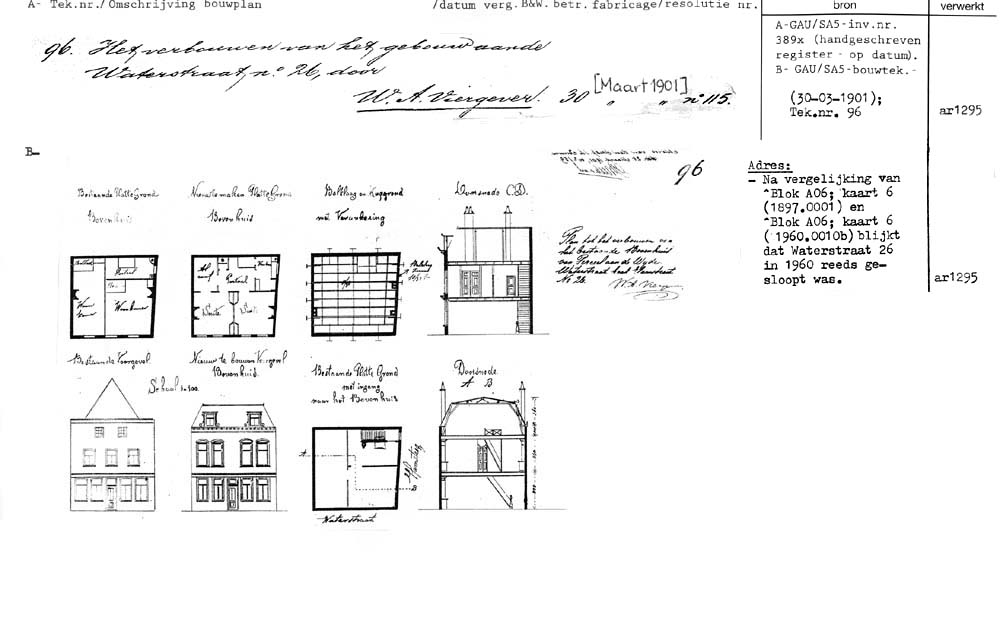 A- Tek.nr./Omschrijving bouwplan
/datum verg.B&W. betr. fabricage/resolutie nr.
bron
verwerkt
96. Het verbouwen van het gebouw aan de
Waterstraat, no 26, door
W. A. Viergever. 30 [Maart 1901] " " no 115.
A-GAU/SA5-inv.nr.
389x (handgeschreven
register - op datum).
B- GAU/SA5-bouwtek.-
(30-03-1901);
Tek.nr. 96
ar1295
B-
96
Adres:
- Na vergelijking van
^Blok A06; kaart 6
(1897.0001) en
^Blok A06; kaart 6
(1960.0010b) blijkt
dat Waterstraat 26
in 1960 reeds ge-
sloopt was.
ar1295
Bestaande Platte Grond
Bovenhuis
Nieuw te maken Platte Grond
Bovenhuis
Balklaag en Kapgrond
met Verankering
Doorsnede C D.
Plan tot het verbouwen van
het bestaande Bovenhuis
No 26.
Bestaande Voorgevel
Nieuw te bouwen Voorgevel
Bovenhuis.
Schaal 1 à 100.
Bestaande Platte Grond
met ingang
naar het Bovenhuis
Doorsnede
A B
Waterstraat